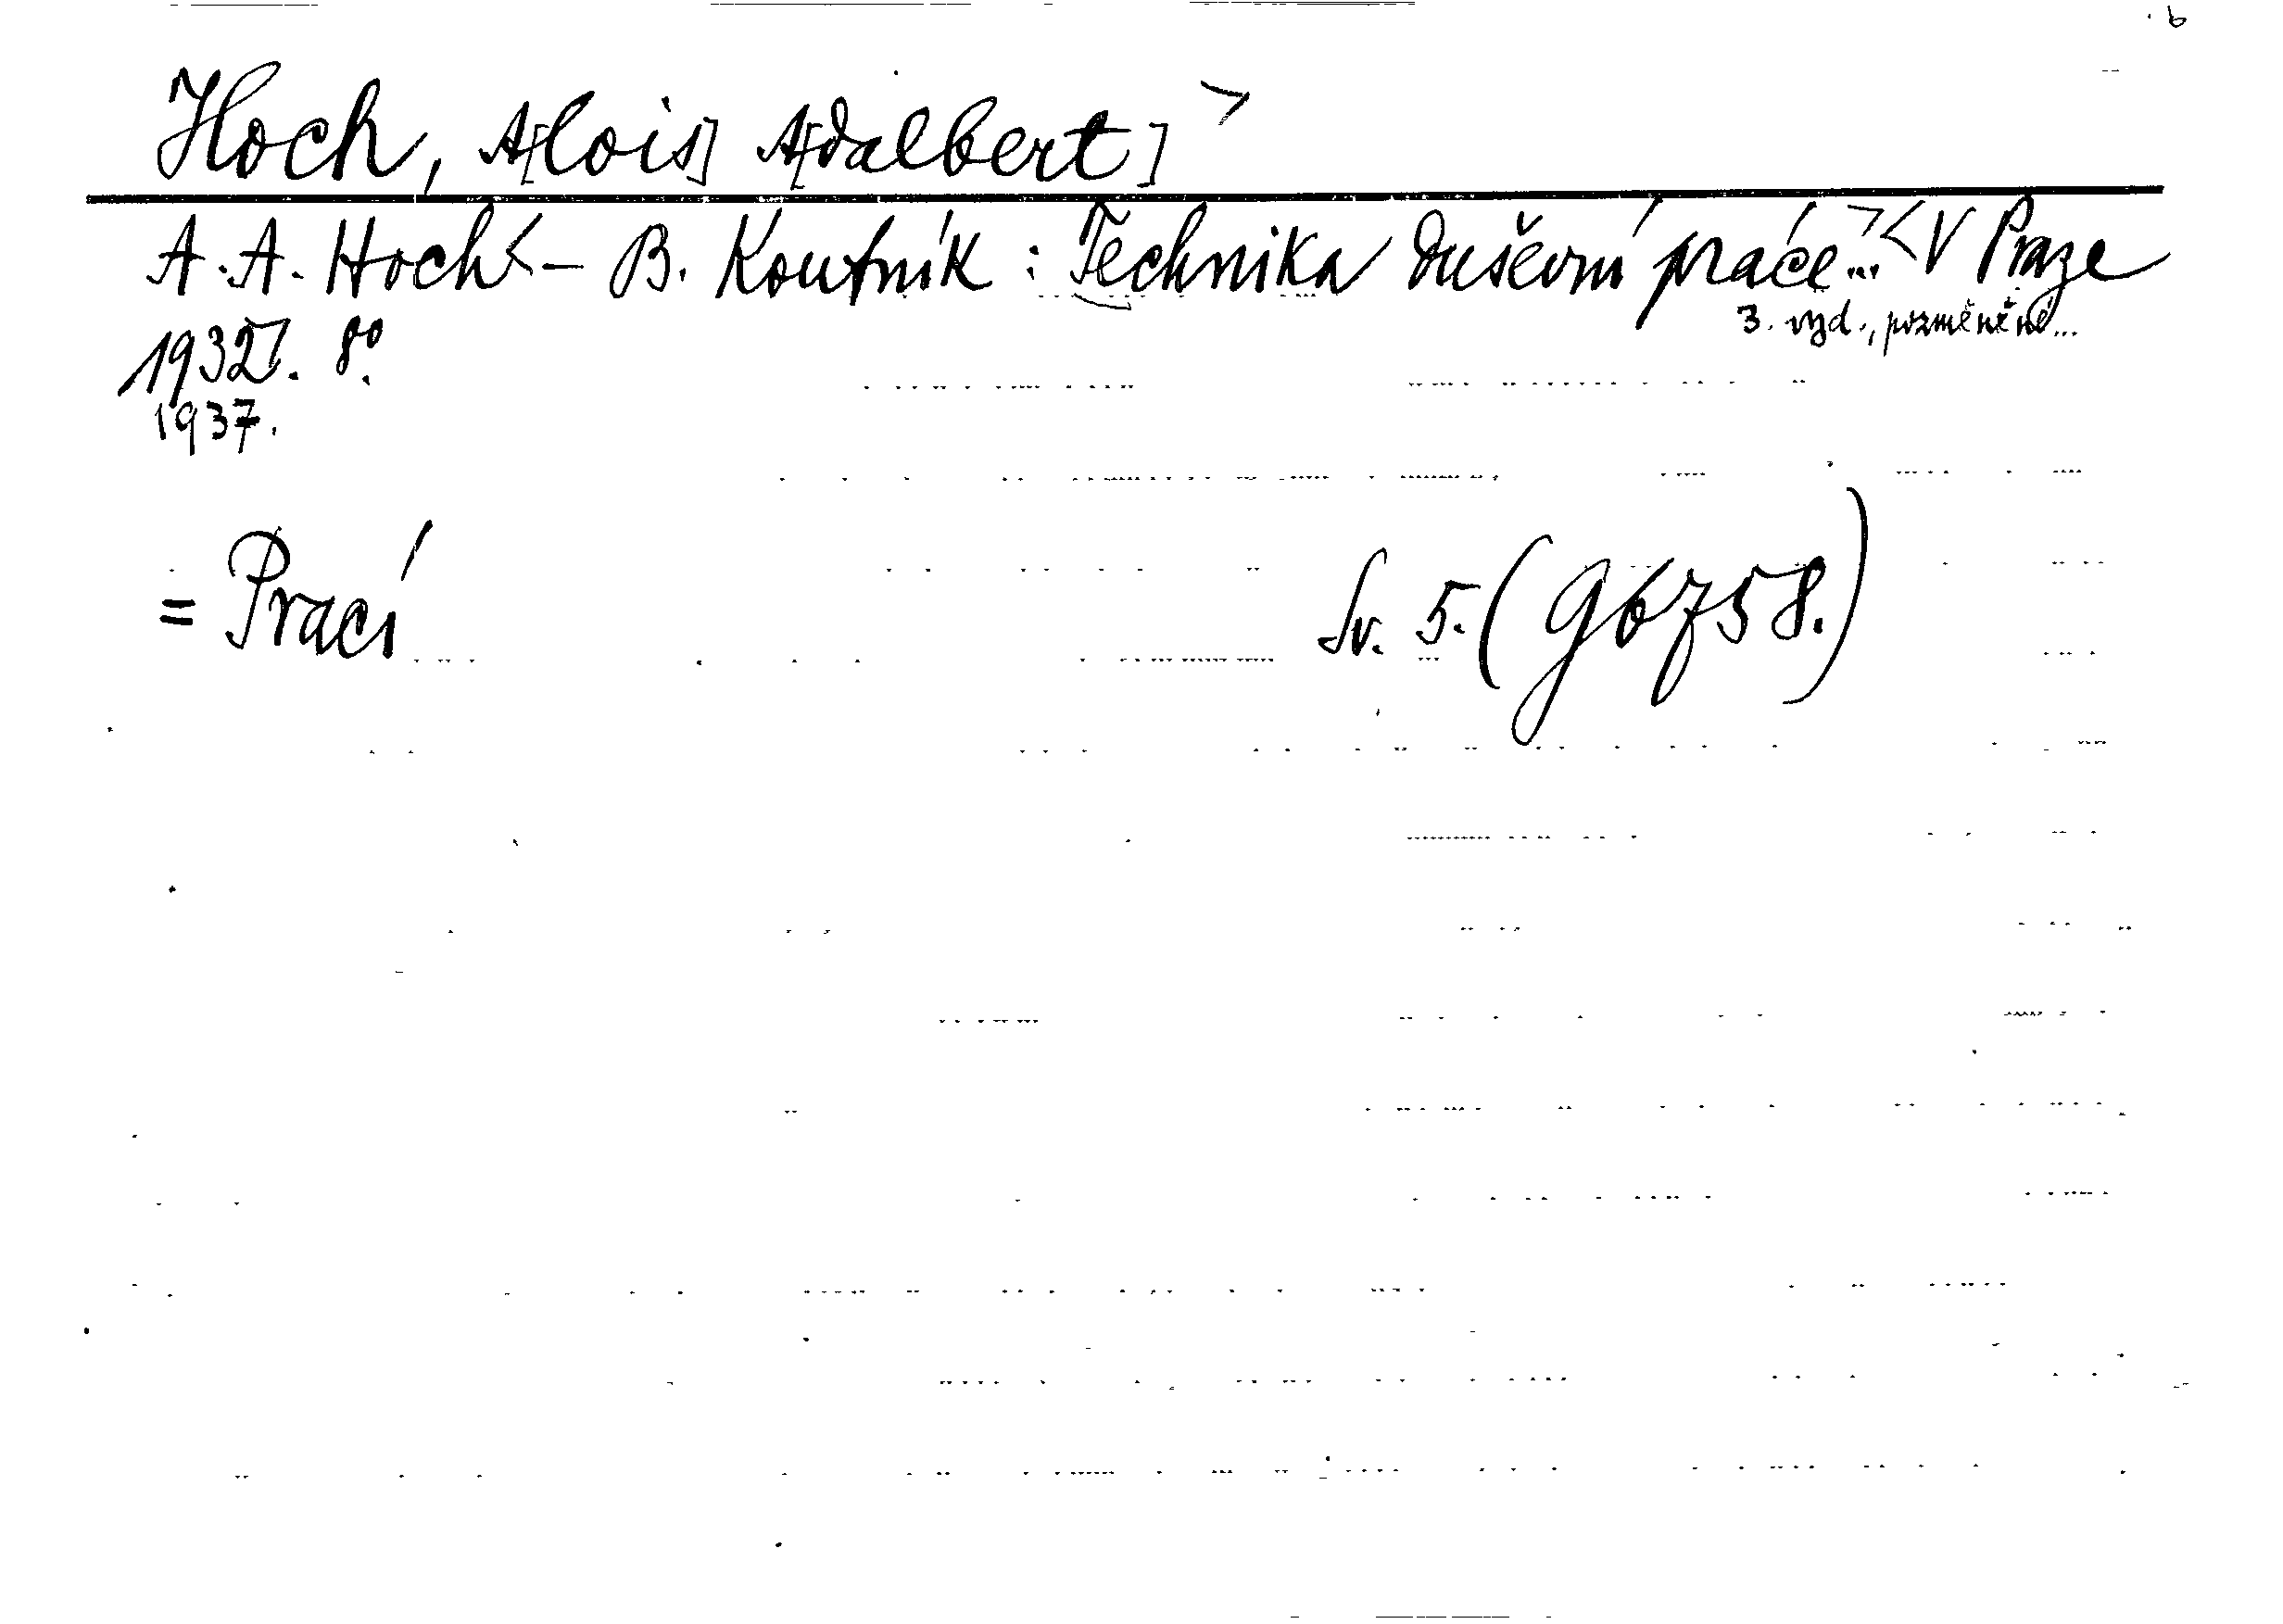 b
Hoch, A[lois] A[dalbert] >
A. A. Hoch < – B. Koutník : Technika duševní práce ... > < V Praze
3. vyd., pozměněné ...
1932]. 8º.
1937.
= Prací Sv. 5. (g 6758.)